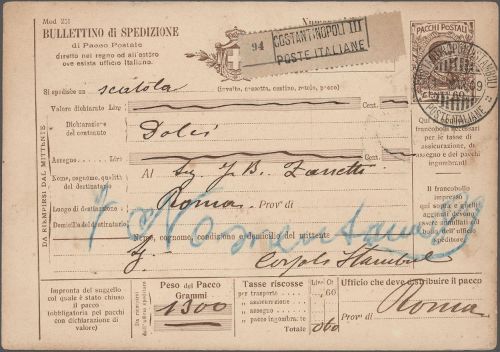 Mod 251
BULLETTINO di SPEDIZIONE
di Pacco Postale
diretto nel regno od all'estero
ove esista ufficio Italiano.
94 COSTANTINOPOLI III
POSTE ITALIANE
PACCHI POSTALI
POSTE ITALIANE
Si spedisce un scatola (involto, cassetta, cestino, rotolo, pacco)
Valore dichiarato Lire Cent.
Dichiarazione del contenuto Dolci
Assegno Lire Cent.
Nome, cognome, qualità del destinatario Al Sig J. B. Zanetti
Luogo di destinazione Roma Prov' di
Domicilio del destinatario
Nomentana
Nome, cognome, condizione e domicilio del mittente
DA RIEMPIRSI DAL MITTENTE
francobolli necessari
per le tasse di
assicurazione,
di assegno e dei pacchi
ingombranti.
Il francobollo
impresso
qui sopra e quelli
aggiunti devono
essere annullati
dall'uffizio
speditore
Impronta del suggello
col quale è stato chiuso
il pacco
(obbligatoria pei pacchi
con dichiarazione di
valore)
Da riempirsi
dall'ufficio speditore
Peso del Pacco
Grammi
1300
Tasse riscosse Lire Ct
per trasporto 60
" assicurazione
" assegno
" pacco ingombrante
Totale 060
Ufficio che deve distribuire il pacco
Roma
Prov' di